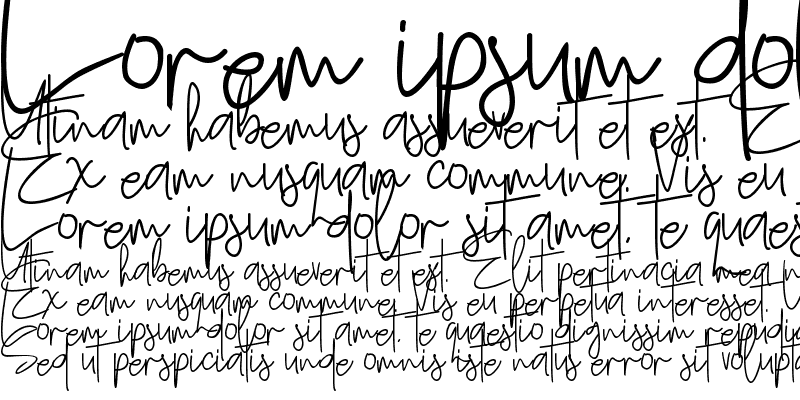 Lorem ipsum dol
Atinam habemus assueverit et est. E
Ex eam nusquam commune. Vis eu
Lorem ipsum dolor sit amet, te quaes
Atinam habemus assueverit et est. Elit pertinacia mea n
Ex eam nusquam commune. Vis eu perpetua interesset. U
Lorem ipsum dolor sit amet, te quaestio dignissim repudia
Sed ut perspiciatis unde omnis iste natus error sit volupta